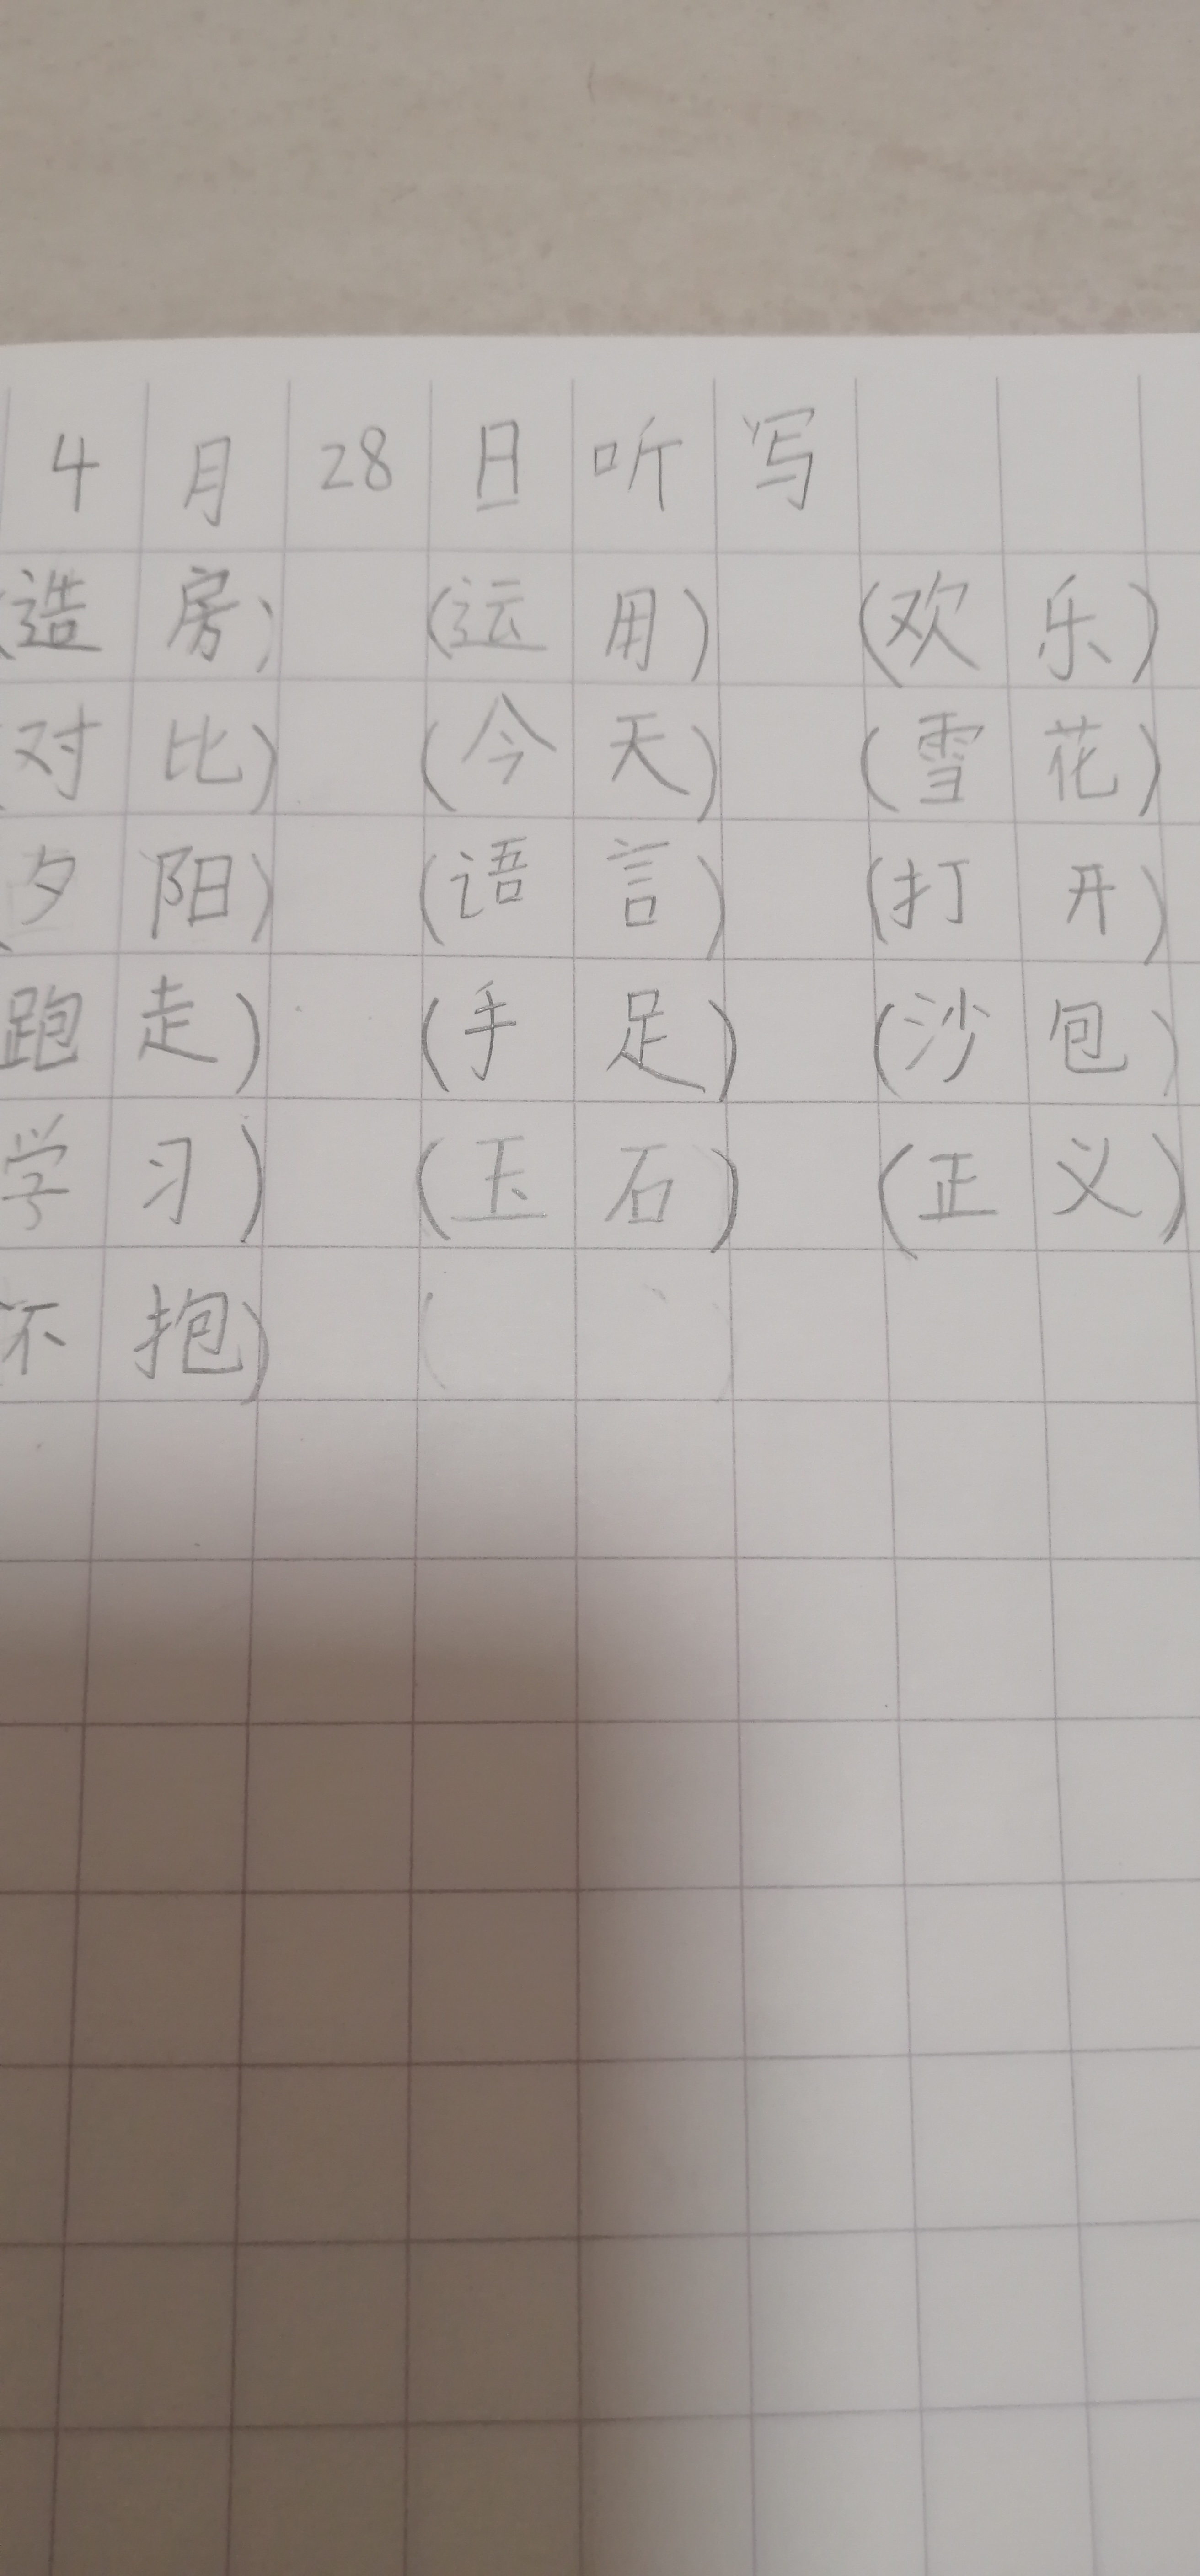 4月28日听写
(造房) (运用) (欢乐)
(对比) (今天) (雪花)
(夕阳) (语言) (打开)
跑走) (手足) (沙包)
学习) (玉石) (正义)
抱) ( )